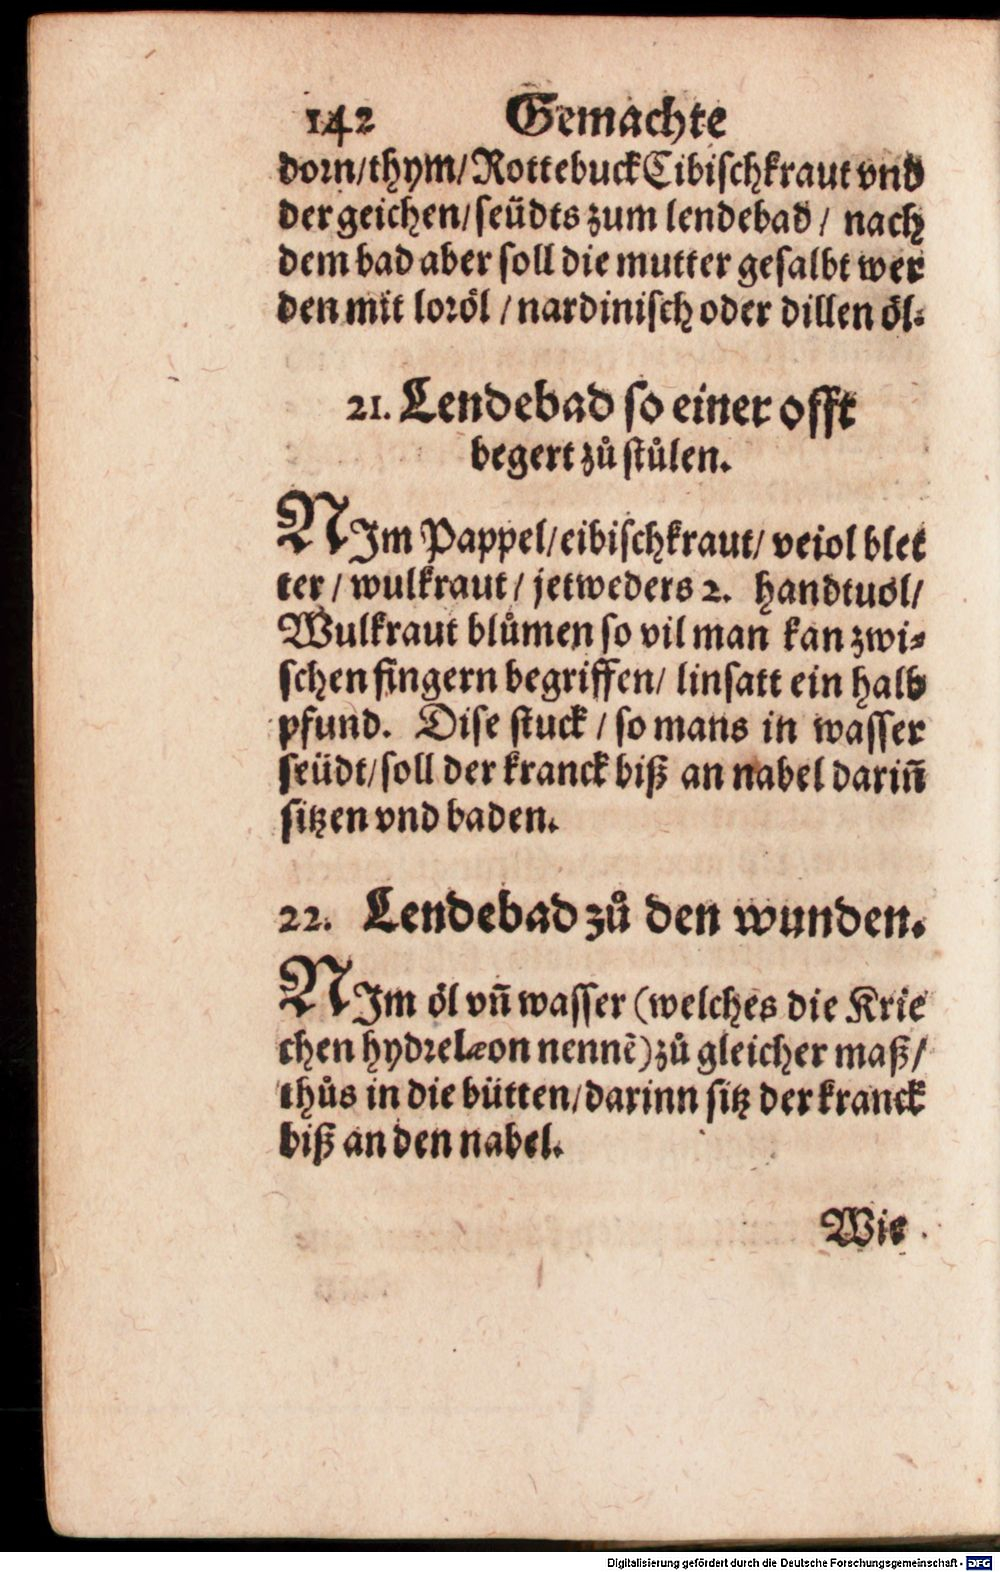 142 Gemachte
dorn/thym/Rottebuck Eibischkraut vnd
der geichen/seüdts zum lendebad/ nach
dem bad aber soll die mutter gesalbt wer
den mit loröl/nardinisch oder dillen öl.
21. Lendebad so einer offt
begert zů stůlen.
NIm Pappel/eibischkraut/ veiol blet
ter/ wulkraut/ jetweders 2. handtuol/
Wulkraut blůmen so vil man kan zwi-
schen fingern begriffen/ linsatt ein halb
pfund. Dise stuck/ so mans in wasser
seüdt/soll der kranck biß an nabel dariñ
sitzen vnd baden.
22. Lendebad zů den wunden.
NIm öl vñ wasser (welches die Krie
chen hydrelæon nennẽ) zů gleicher maß/
thůs in die bütten/darinn sitz der kranck
biß an den nabel.
Wie
Digitalisierung gefördert durch die Deutsche Forschungsgemeinschaft - DFG